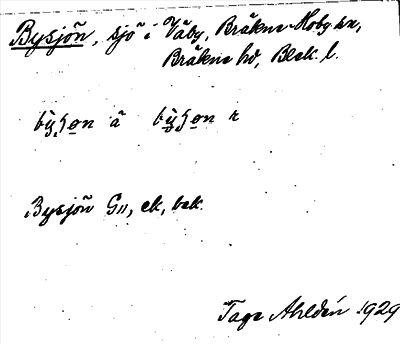 Bysjön, sjö i Väby, Bräkne-Hoby sn,
Bräkne hd, Blek. l.
bỳʃo̲n å bỳʃo̲n r
Bysjön G11, ek, bek.
Tage Ahldén 1929